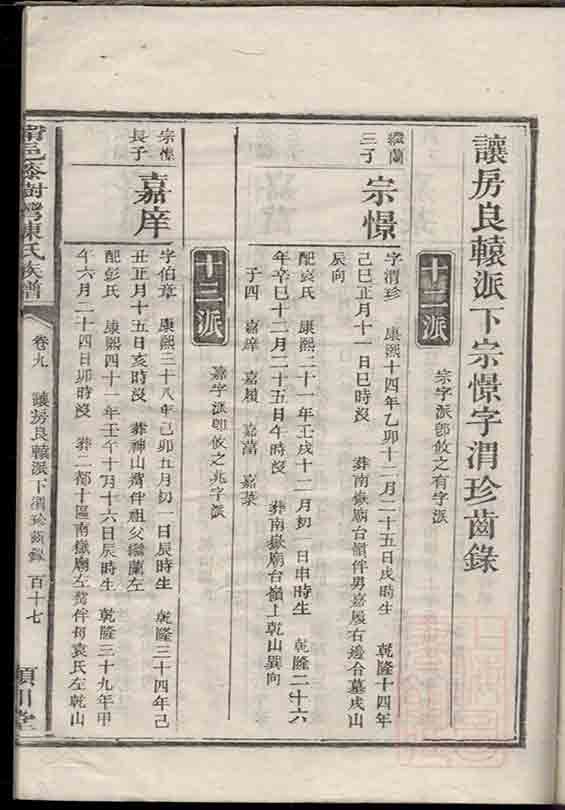 讓房良轅派下宗憬字渭珍齒錄
十二派
宗字派卽攸之有字派
繼蘭
三子
宗憬
字渭珍 康熙十四年乙卯十二月二十五日戌時生 乾隆十四年
己巳正月十一日巳時沒 葬南嶽廟台嶺伴男嘉履右邊合墓戌山
辰向
配袁氏 康熙二十一年壬戌十二月初一日申時生 乾隆二十六
年辛巳十二月二十五日午時沒 葬南嶽廟台嶺上乾山巽向
子四 嘉庠 嘉履 嘉謨 嘉菜
十三派
嘉字派卽攸之兆字派
宗憬
長子
嘉庠
字伯章 康熙三十八年己卯五月初一日辰時生 乾隆三十四年己
丑正月十五日亥時沒 葬神山嘴伴祖父繼蘭左
配彭氏 康熙四十一年壬午十月十六日辰時生 乾隆三十九年甲
午六月二十四日卯時沒 葬二都十區南嶽廟左嘴伴母袁氏左乾山
邑漆樹灣陳氏族譜
卷九
讓房良轅派下渭珍齒錄
百十七
潁川堂